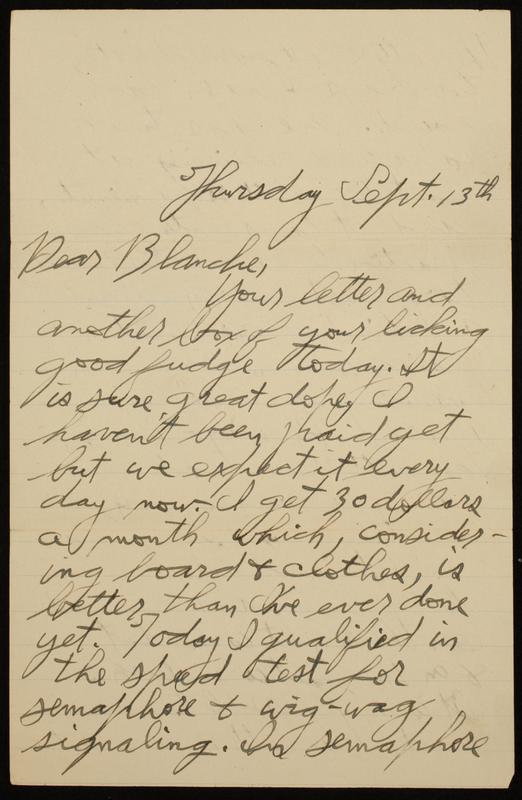 Thursday Sept. 13th
Dear Blanche,
Your letter and
another box of your licking
good fudge today. It
is sure great dope. I
haven't been paid yet
but we expect it every
day now. I get 30 dollars
a month which, consider-
ing board & clothes, is
better than I've ever done
yet. Today I qualified in
the speed test for
semaphore & wig-wag
signaling. In semaphore